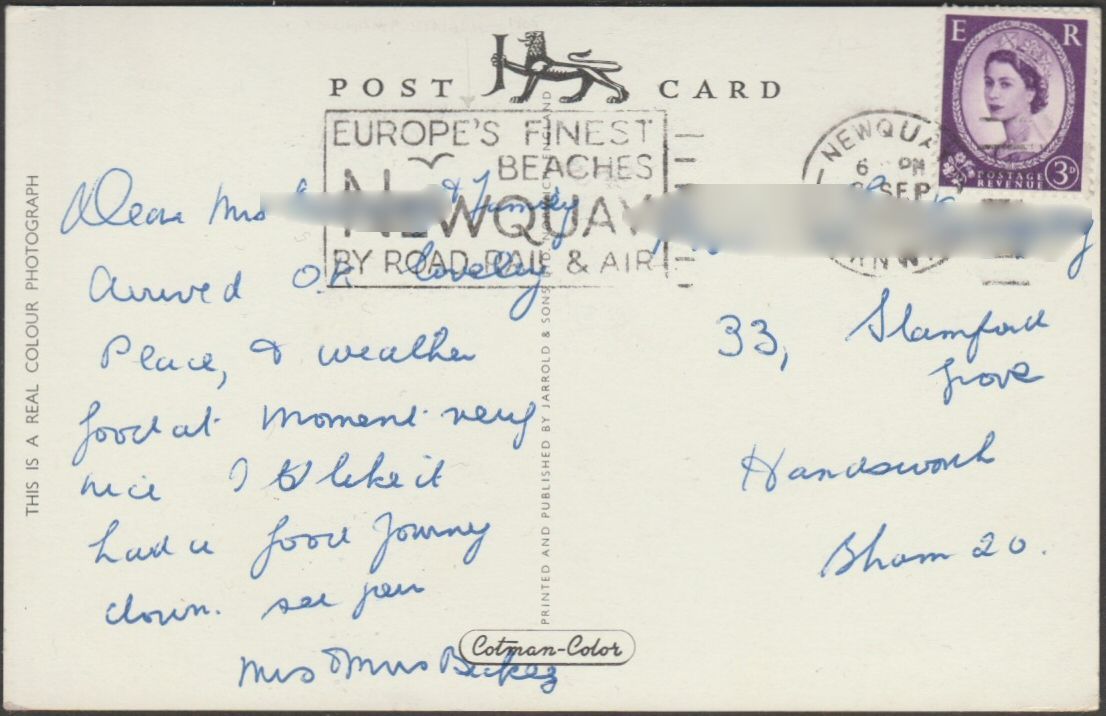 POST CARD
EUROPE'S FINEST
BEACHES
NEWQUAY
BY ROAD RAIL & AIR
NEWQUAY
6 PM
SEP
E R
POSTAGE
REVENUE
3D
THIS IS A REAL COLOUR PHOTOGRAPH
PRINTED AND PUBLISHED BY JARROLD & SONS LTD NORWICH ENGLAND
Dear Mrs & Family
Arrived O.K lovely
Place, & weather
good at moment very
nice I like it
had a good Journey
down. see you
Mrs
33, Stamford
Grove
Handsworth
Bham 20.
Cotman-Color